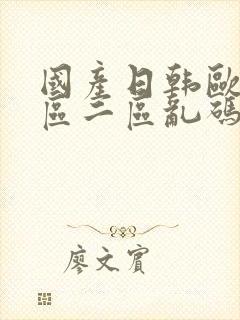 國產日韩歐
區二區亂碼
廖文賓